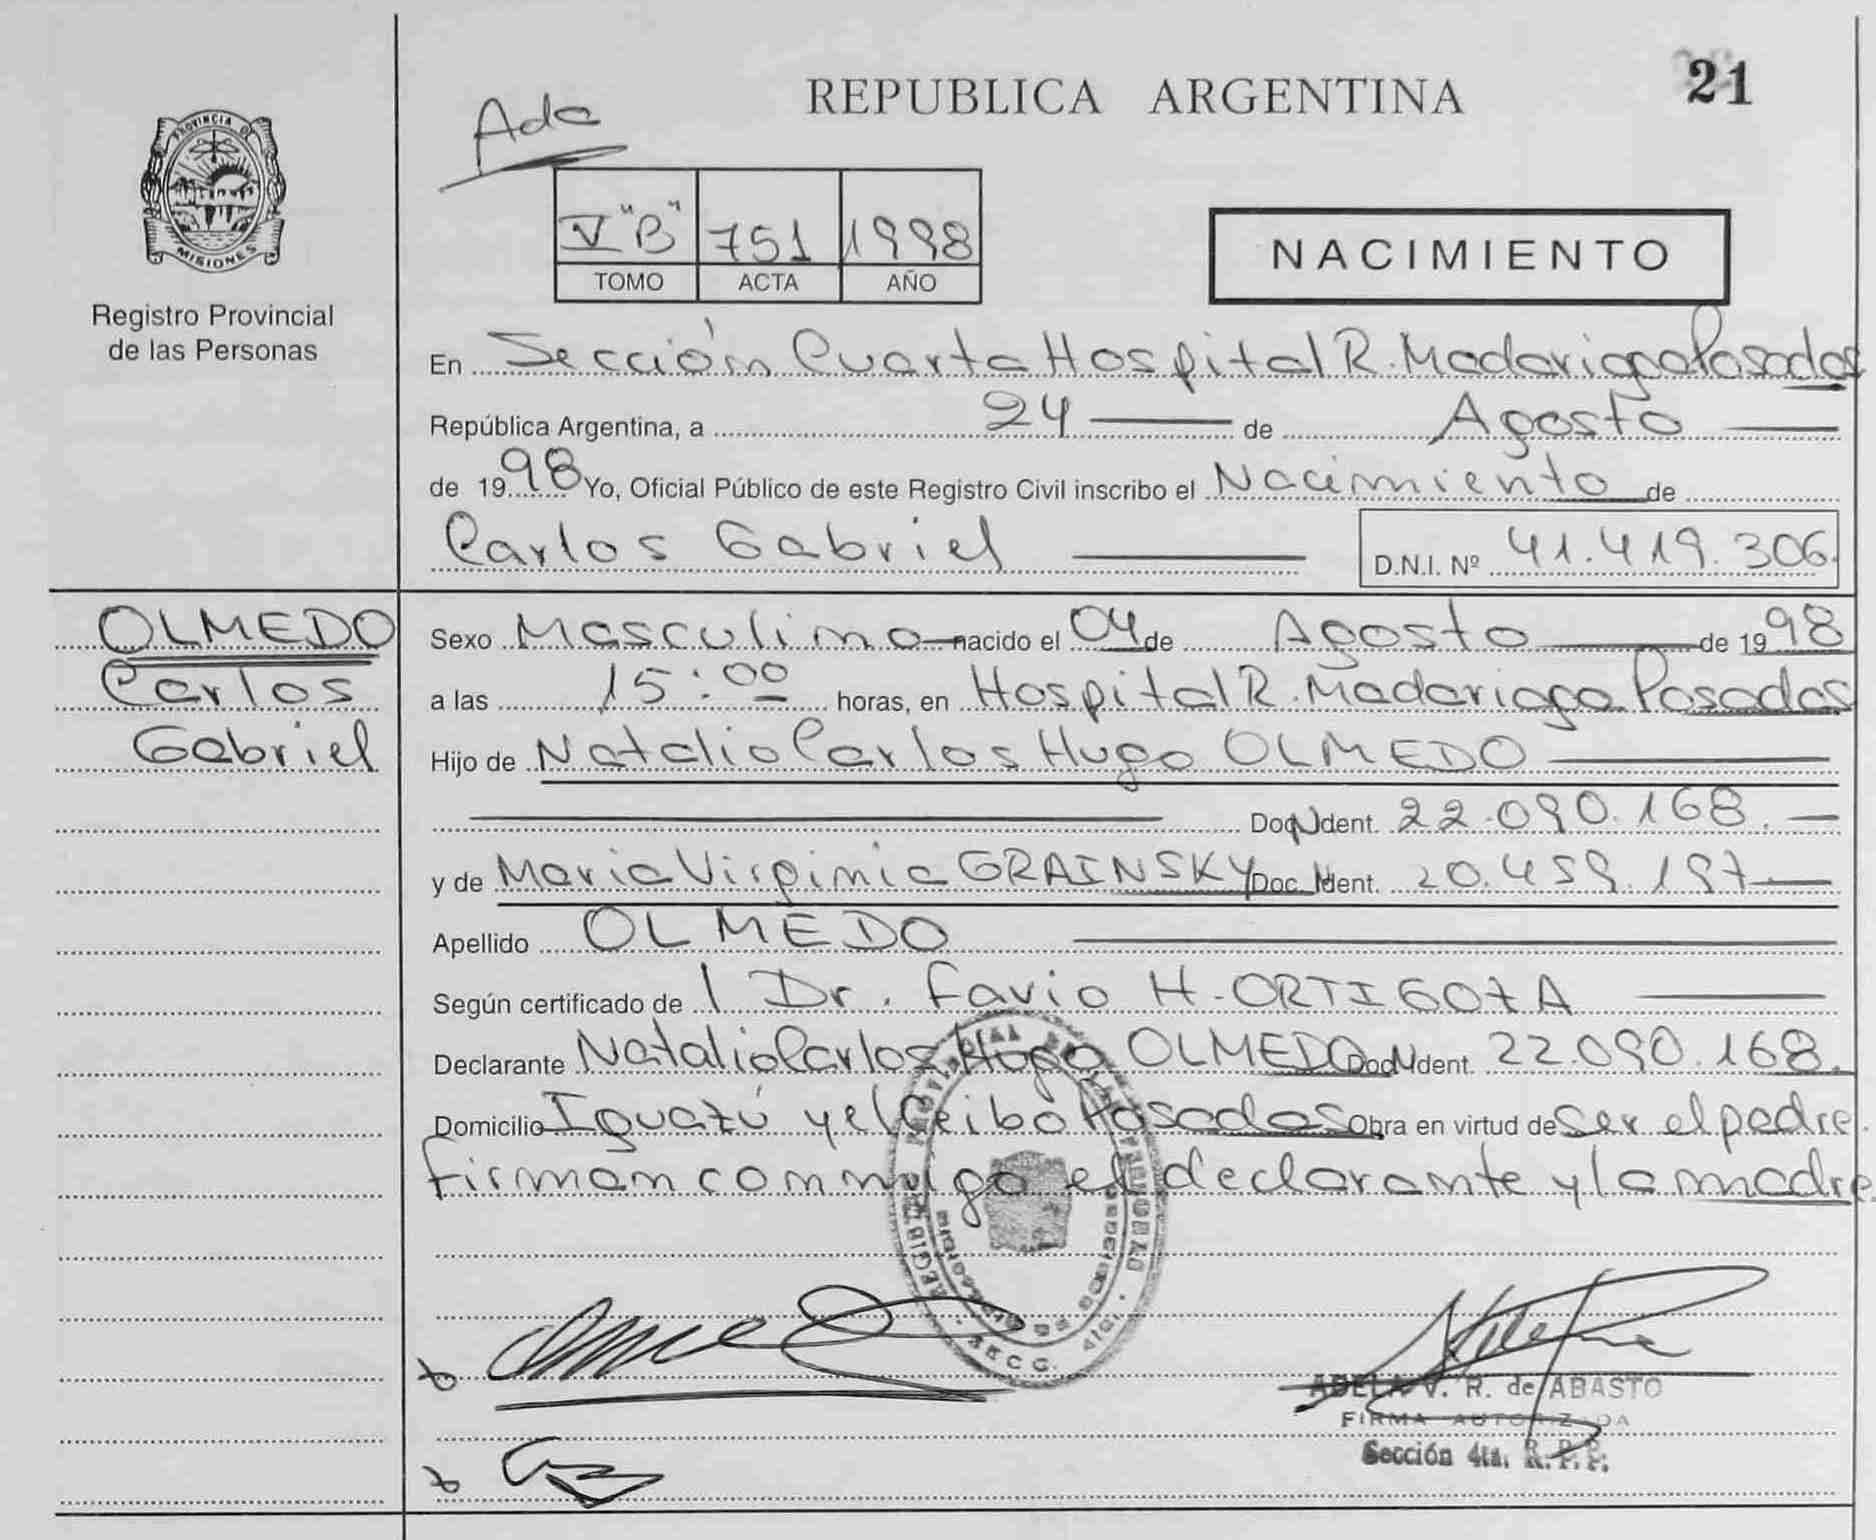 REPUBLICA ARGENTINA
21
Ada
PROVINCIA DE
MISIONES
Registro Provincial
de las Personas
V "B" 751 1998
TOMO ACTA AÑO
NACIMIENTO
En Sección Cuarta Hospital R. Madariaga Posadas
República Argentina, a 24 de Agosto
de 1998 Yo, Oficial Público de este Registro Civil inscribo el Nacimiento de
Carlos Gabriel D.N.I. Nº 41.419.306.
OLMEDO
Carlos
Gabriel
Sexo Masculino nacido el 04 de Agosto de 1998
a las 15:00 horas, en Hospital R. Madariaga Posadas
Hijo de Natalio Carlos Hugo OLMEDO
Doc. Ident. 22.090.168.
y de Maria Virginia GRAINSKY Doc. Ident. 20.459.197
Apellido OLMEDO
Según certificado de Dr. Favio H. ORTIGOZA
Declarante Natalio Carlos Hugo OLMEDO Doc. Ident. 22.090.168.
Domicilio Iguazú y el Ceibo Posadas Obra en virtud de Ser el padre.
Firman conmigo el declarante y la madre.
ADELA V. R. de ABASTO
FIRMA AUTORIZADA
Sección 4ta. R.P.P.